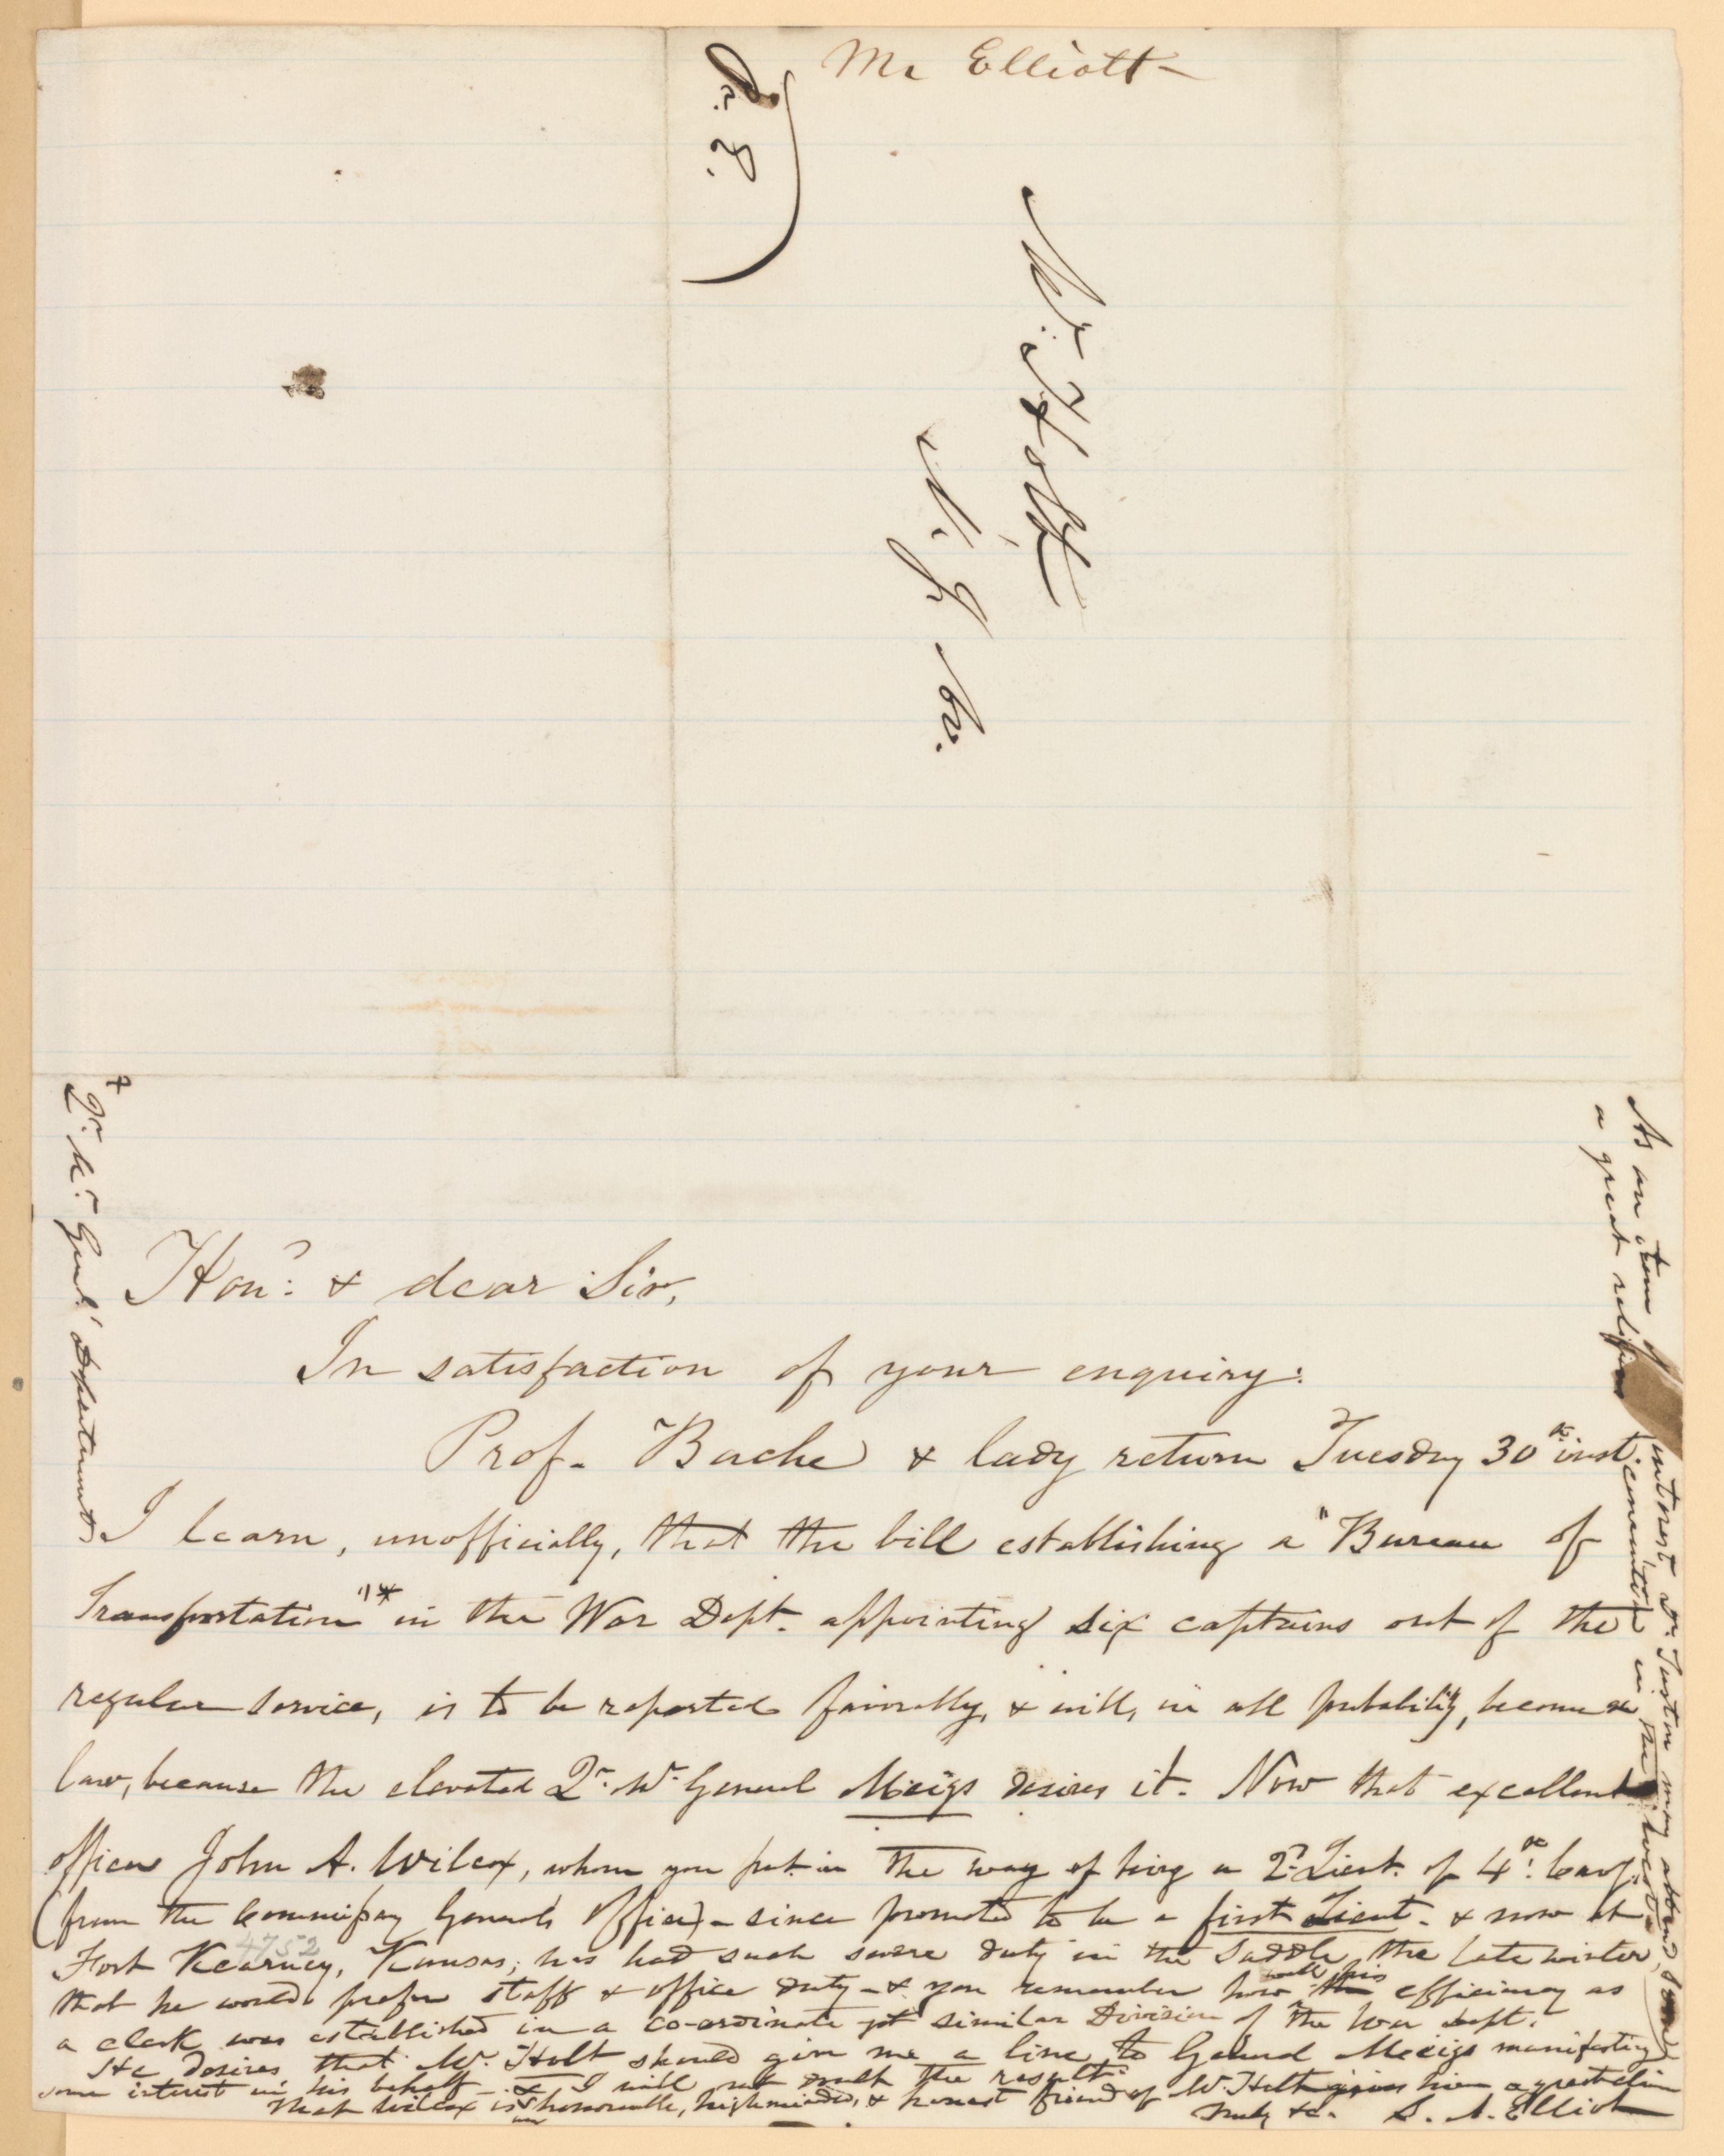 Mr Elliott
Mr. Holt
Hon: & dear Sir,
In satisfaction of your enquiry:
Prof. Bache & lady return Tuesday 30th inst.
I learn, unofficially, that the bill establishing a "Bureau of
Transportation"* in the War Dept. appointing six captains out of the
regular service, is to be reported favorably, & will, in all probability, become a
law, because the elevated Qr. Mr. General Meigs desires it. Now that excellent
officer John A. Wilcox, whom you put in the way of being a 2d Lieut. of 4th. Cavy.
(from the Commissary General's Office) - since promoted to be a first Lieut. - & now at
Fort Kearney, Kansas, has had such severe duty in the saddle, the late winter,
that he would prefer staff & office duty - & you remember how well his efficiency as
a clerk was established in a co-ordinate yet similar Division of the War Dept.
He desires that Mr. Holt should give me a line to General Meigs manifesting
some interest in his behalf - & I will not doubt the result.
That Wilcox is an honorable, highminded, & honest friend of Mr. Holt gives him a great claim
Truly &c. S. A. Elliot
* Qr. Mr. Genl.' Department
4752
As an item of interest Dr. Turton may attend,
a great religious convention in the West